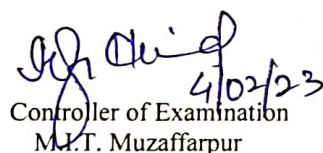 4/02/23
Controller of Examination
M.I.T. Muzaffarpur